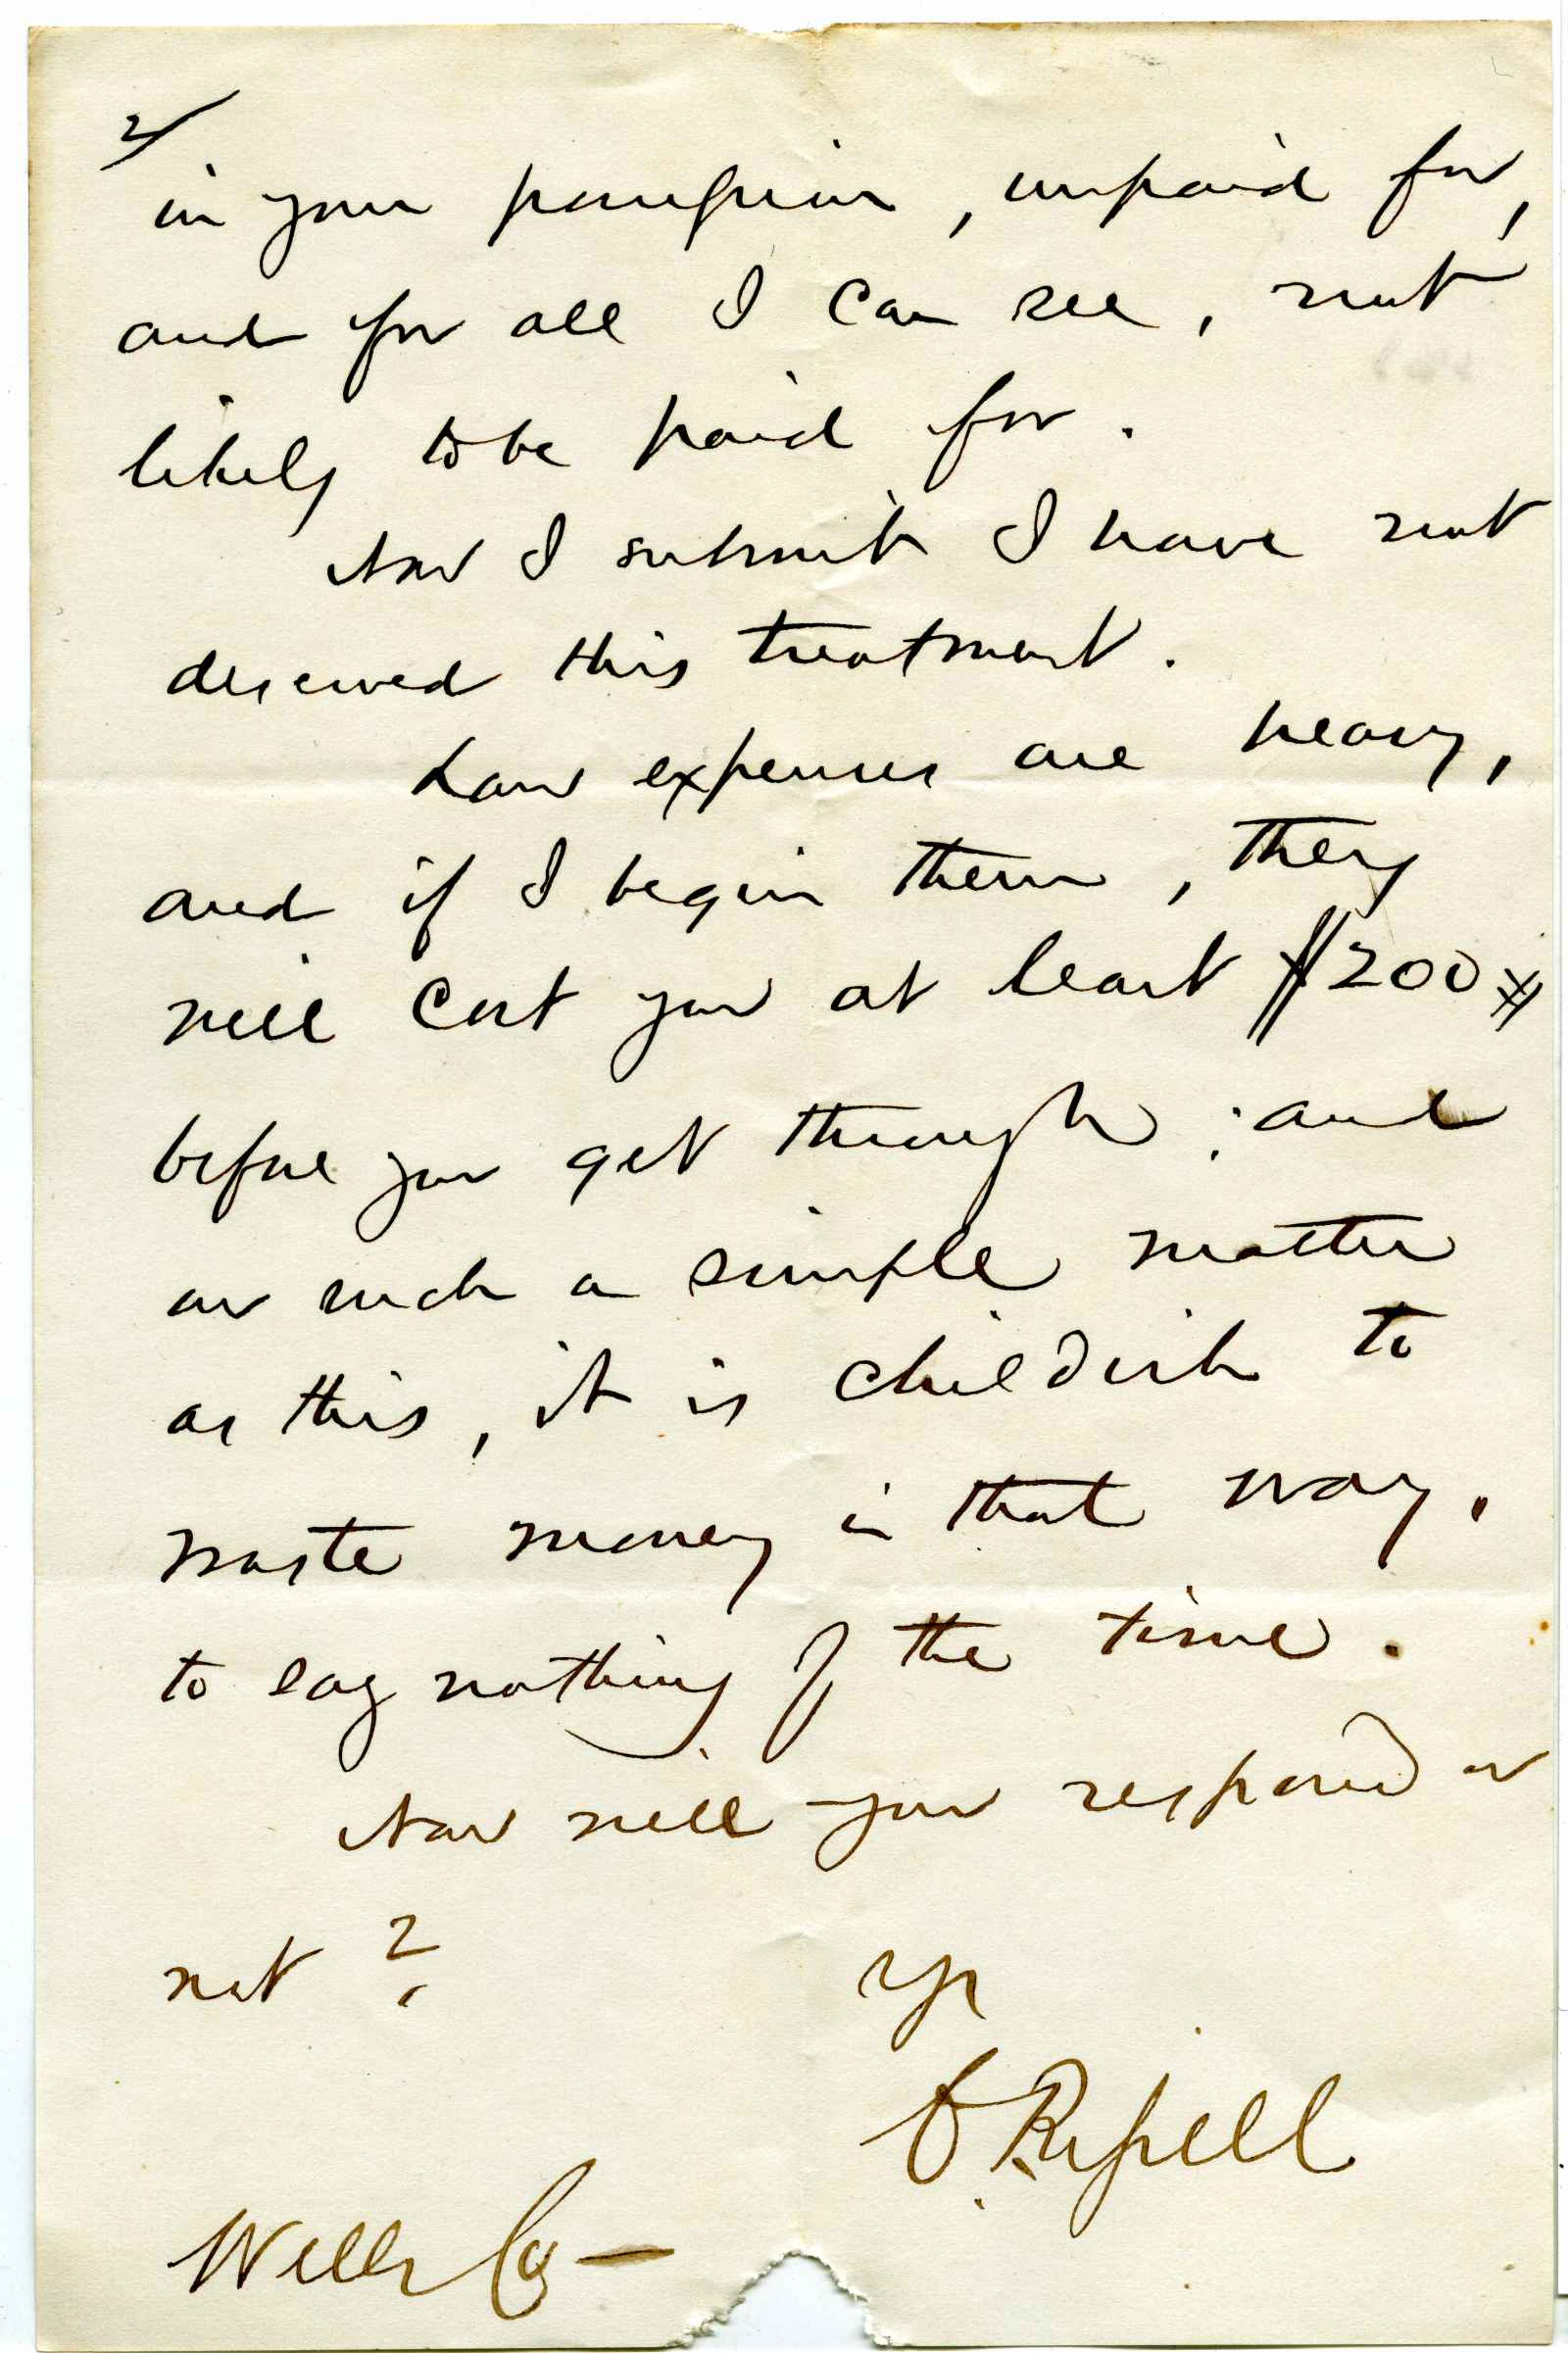 2/
in your possession, unpaid for,
and for all I can see, not
likely to be paid for.
Now I submit I have not
deserved this treatment.
Law expenses are heavy,
and if I begin them, they
will cost you at least $200
before you get through; and
on such a simple matter
as this, it is childish to
waste money in that way,
to say nothing of the time.
Now will you respond or
not?
Yrs
Russell
Wells Co —